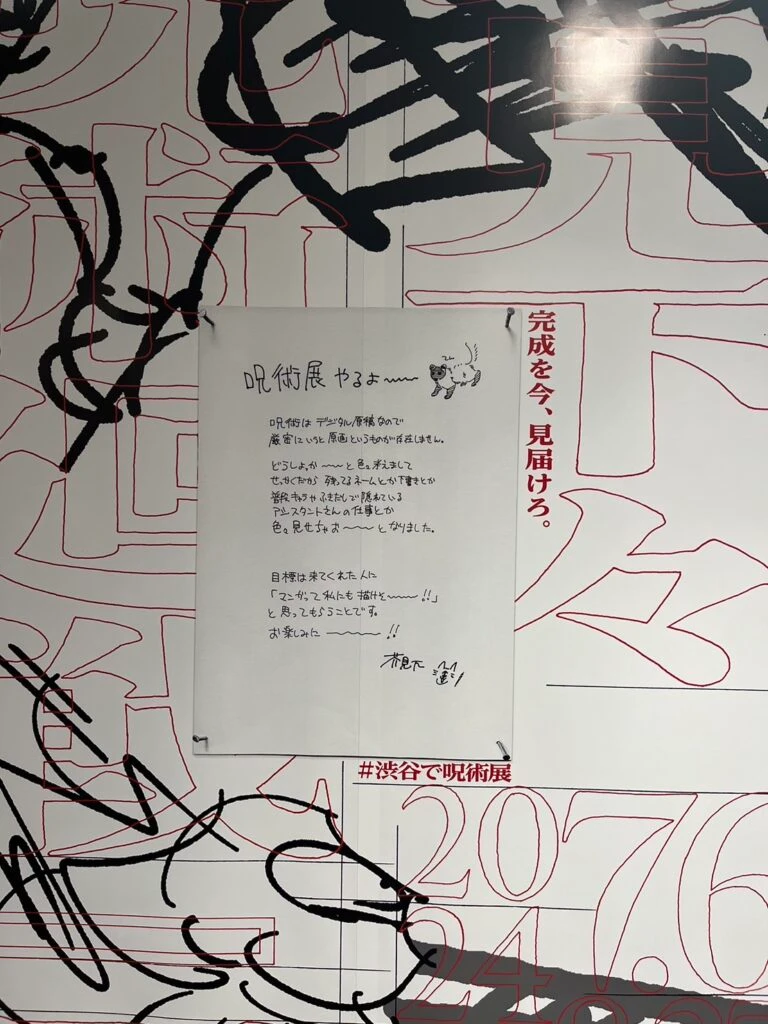 見下々
術廻戦
呪術展 やるよ〜〜
呪術は デジタル原稿なので
厳密にいうと 原画というものが存在しません。
どうしよっか 〜〜 と 色々考えまして
せっかくだから 残ってるネームとか下書きとか
普段キャラやふきだしで隠れている
アシスタントさんの仕事とか
色々見せちゃお 〜〜 となりました。
目標は来てくれた人に
「マンガって私にも描けそ〜〜!!」
と思ってもらうことです。
お楽しみに 〜〜 !!
芥見下
完成を今、見届けろ。
#渋谷で呪術展
20 7.6
24